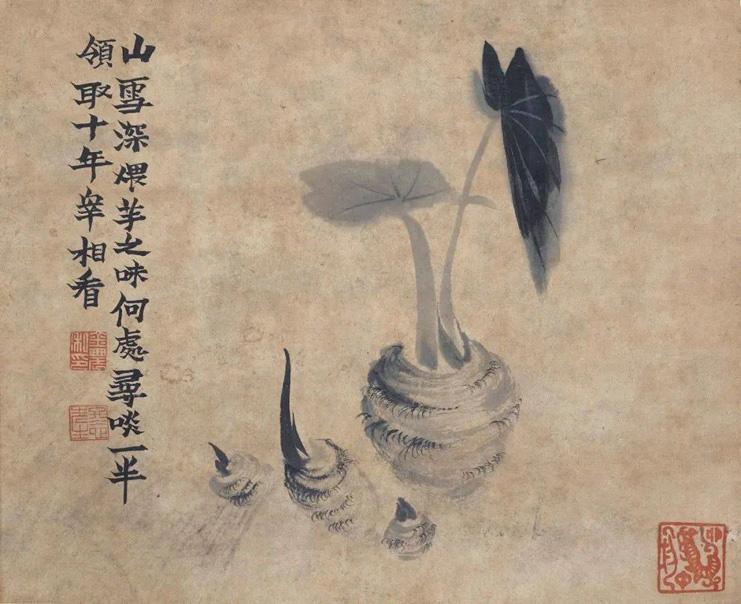 山雪深煨芋之味何處尋啖一半
領取十年宰相看